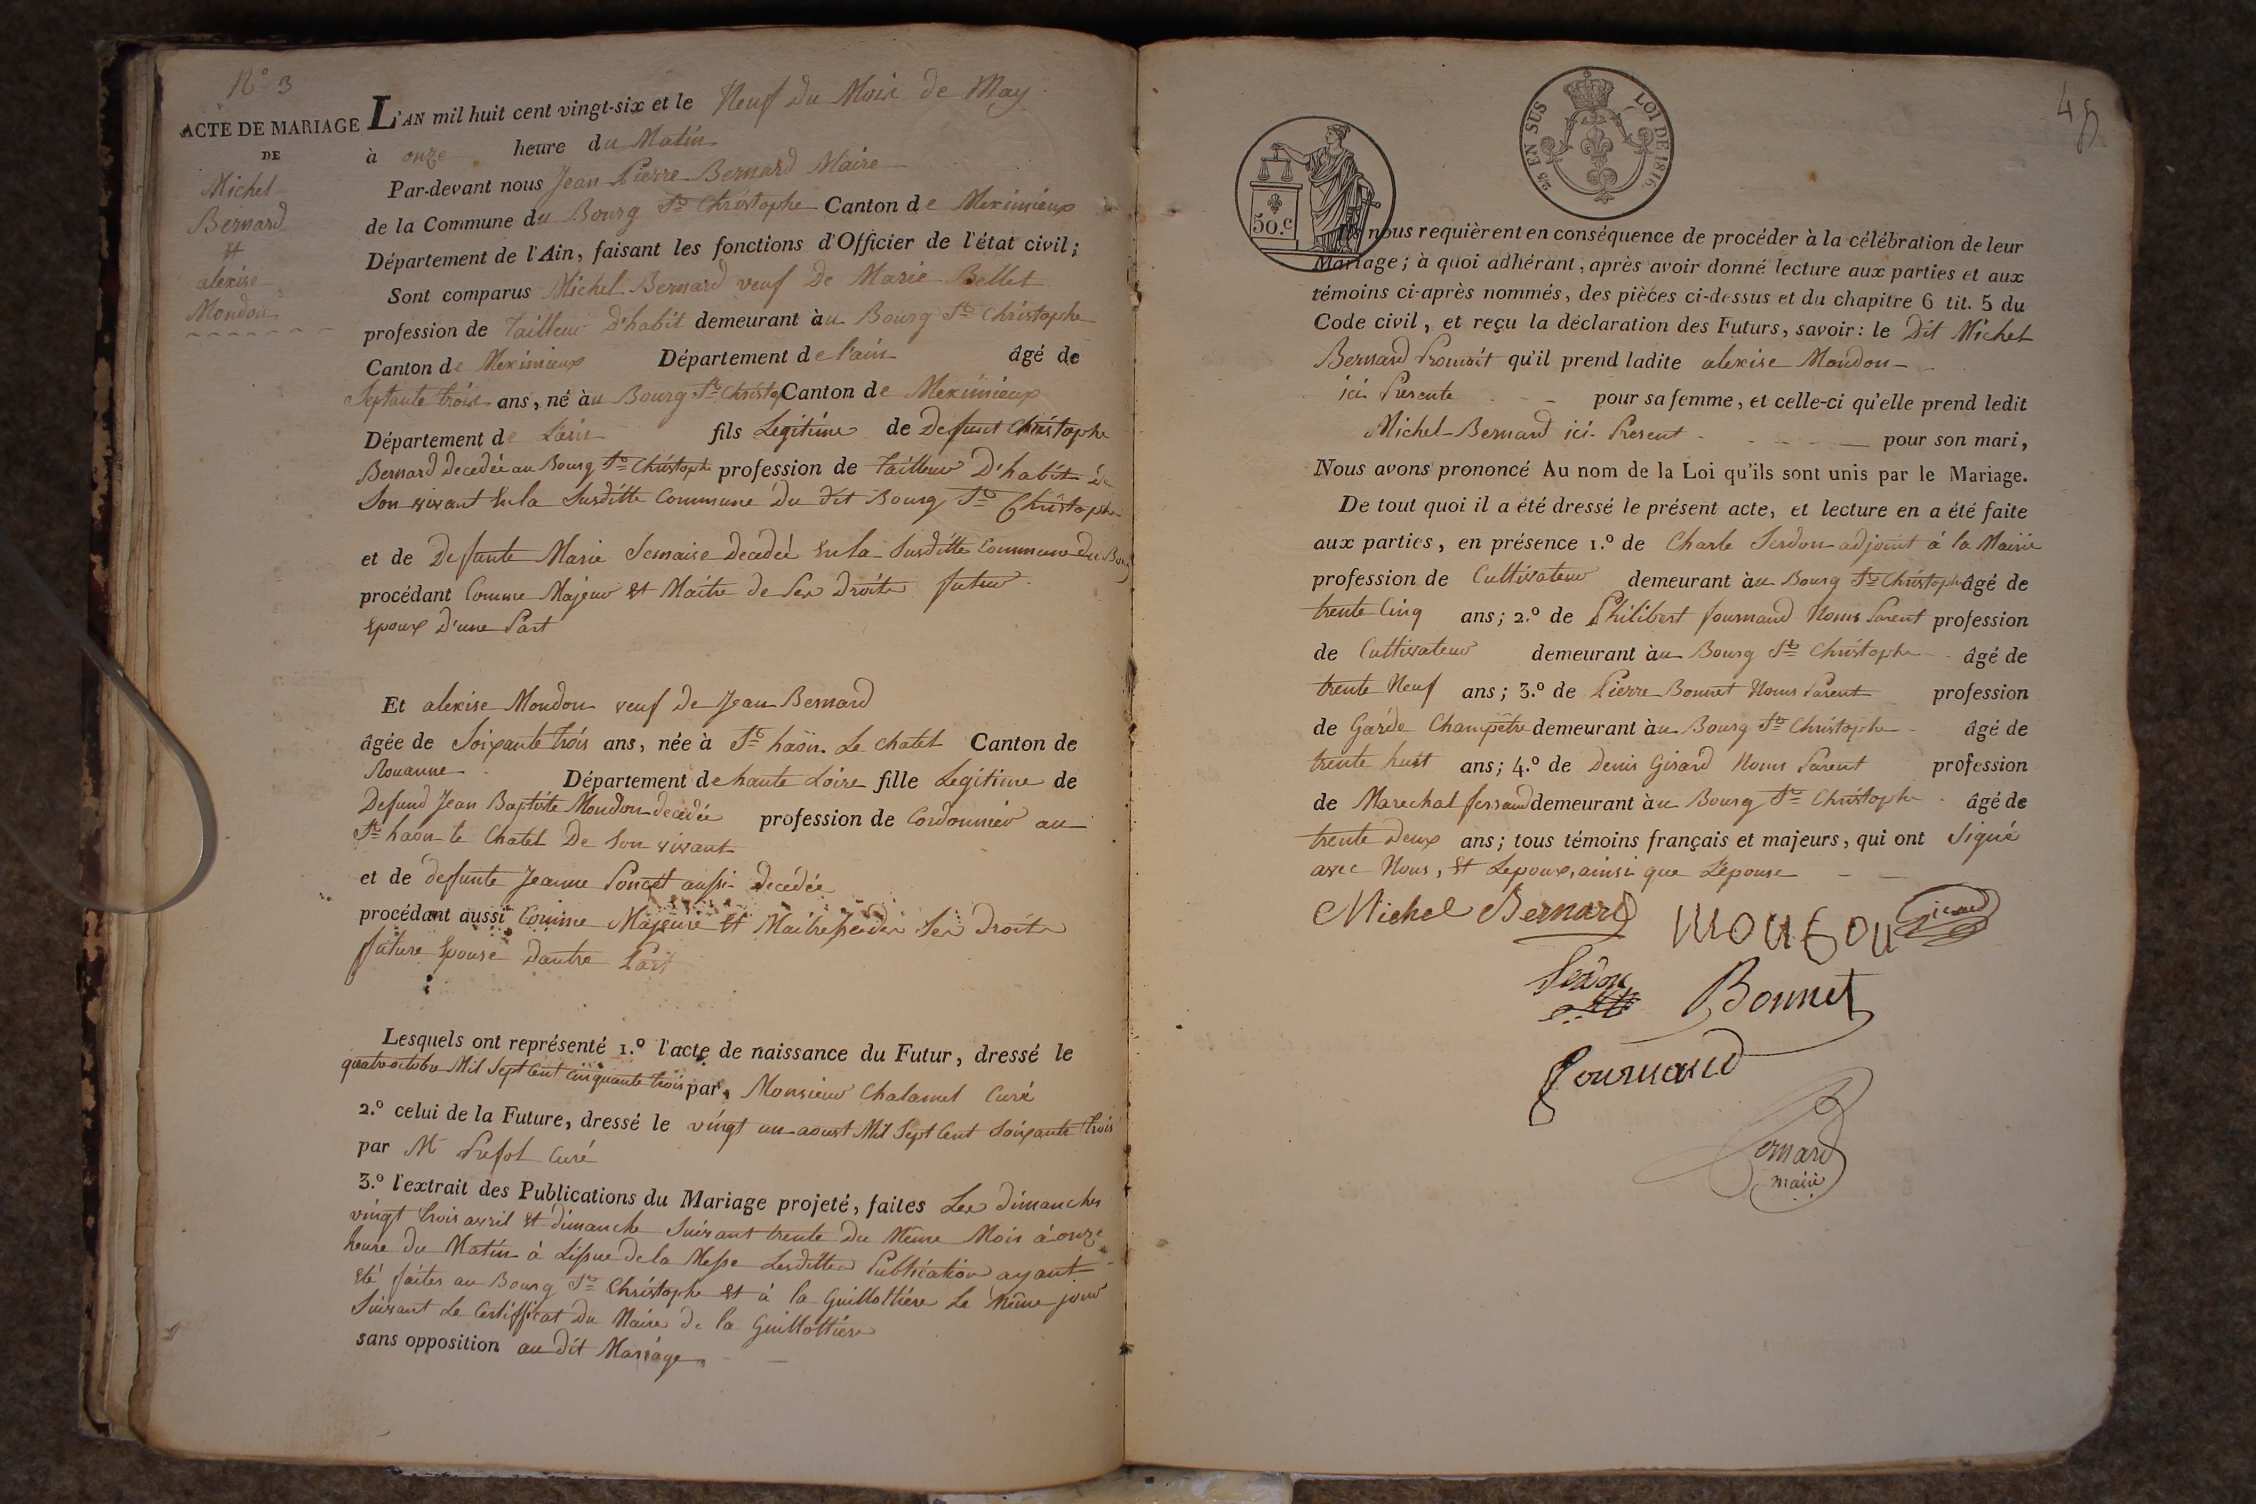 N° 3
ACTE DE MARIAGE
DE
Michel
Bernard
et
alexise
Mondon
L'AN mil huit cent vingt-six et le Neuf du Mois de May
à onze heure du Matin
Par-devant nous Jean Pierre Bernard Maire
de la Commune du Bourg St Christophe Canton de Meximieux
Département de l'Ain, faisant les fonctions d'Officier de l'état civil;
Sont comparus Michel Bernard veuf de Marie Bellet
profession de Tailleur D'habit demeurant àu Bourg St Christophe
Canton de Meximieux Département de l'ain âgé de
Septante trois ans, né àu Bourg St Christop Canton de Meximieux
Département de L'ain fils Legitime de Defunt Christophe
Bernard decedée au Bourg St Christophe profession de Tailleur D'habit de
Son vivant En la Susditte Commune du dit Bourg St Christophe
et de Defunte Marie Semaise decedée En la Susditte Commune du Bourg
procédant Comme Majeur et Maitre de Ses Droits futur
Epoux D'une Part
Et alexise Mondon veuf de Jean Bernard
âgée de Soixante trois ans, née à St haon Le chatel Canton de
Rouanne Département de haute Loire fille Legitime de
Defund Jean Baptiste Mondon decedée profession de Cordonnier au
St haon le Chatel De Son vivant
et de defunte Jeanne Poncet aussi decedée
procédant aussi Comme Majeure et Maitresse de Ses Droits
future Epouse Dautre Part
Lesquels ont représenté 1.° l'acte de naissance du Futur, dressé le
quatre octobre Mil Sept Cent cinquante trois par Monsieur Chalamel Curé
2.° celui de la Future, dressé le vingt un aoust Mil Sept Cent Soixante trois
par Mr Prefol Curé
3.° l'extrait des Publications du Mariage projeté, faites Les dimanches
vingt trois avril et dimanche Suivant trente du Même Mois à onze
heure du Matin à Lissue de la Messe Lesdittes Publication ayant
été faites au Bourg St Christophe et à la Guillottiére Le Même jour
Suivant Le Certifficat du Maire de la Guillottiére
sans opposition au dit Mariage
2/5 EN SUS
LOI DE 1816.
50.C
45
Ils nous requièrent en conséquence de procéder à la célébration de leur
Mariage; à quoi adhérant, après avoir donné lecture aux parties et aux
témoins ci-après nommés, des pièces ci-dessus et du chapitre 6 tit. 5 du
Code civil, et reçu la déclaration des Futurs, savoir: le Dit Michel
Bernard Promoit qu'il prend ladite alexise Mondon
ici Presente pour sa femme, et celle-ci qu'elle prend ledit
Michel Bernard ici Present pour son mari,
Nous avons prononcé Au nom de la Loi qu'ils sont unis par le Mariage.
De tout quoi il a été dressé le présent acte, et lecture en a été faite
aux parties, en présence 1.° de Charle Serdon adjoint à la Mairie
profession de Cultivateur demeurant àu Bourg St Christophe âgé de
trente Cinq ans; 2.° de Philibert fournand Nonus Parent profession
de Cultivateur demeurant àu Bourg St Christophe âgé de
trente Neuf ans; 3.° de Pierre Bonnet Nonus Parent profession
de Garde Champetre demeurant àu Bourg St Christophe âgé de
trente huit ans; 4.° de Denis Girard Nonus Parent profession
de Marechal ferrand demeurant àu Bourg St Christophe âgé de
trente Deux ans; tous témoins français et majeurs, qui ont Signé
avec Nous, et Lepoux, ainsi que Lépouse
Michel Bernard
Girard
Serdon
Bonnet
fournand
Bernard
maire